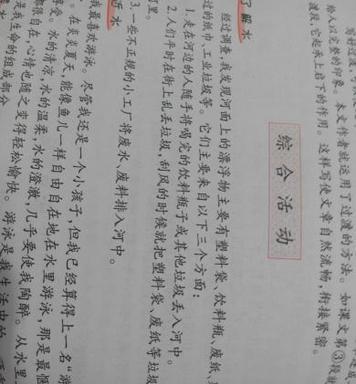 给人以完整的印象。本文作者就运用了过渡的方法。如课文第③段
渡段，它起承上启下的作用。这样写使文章自然流畅，衔接紧密。
综合活动
了解水
经过调查，我发现河面上的漂浮物主要有塑料袋、饮料瓶、废纸、
过的纸巾、工业垃圾等。它们主要来自以下三个方面：
1.走在河边的人随手将喝完的饮料瓶子或其他垃圾丢入河中。
2.人们平时在街上乱丢垃圾，刮风的时候就把塑料袋、废纸等垃圾
河里。
3.一些不正规的小工厂将废水、废料排入河中。
水
我最喜欢游泳。尽管我还是一个小孩子，但我已经算得上一名“游
。在炎炎夏天，能像鱼儿一样自由自在地在水里游泳，那是最惬
受。水的清凉，水的温柔，水的澄澈，几乎要使我陶醉。从水里
自在，心情也随之变得轻松愉快。游泳是我生活中的
是我生命的组成部分